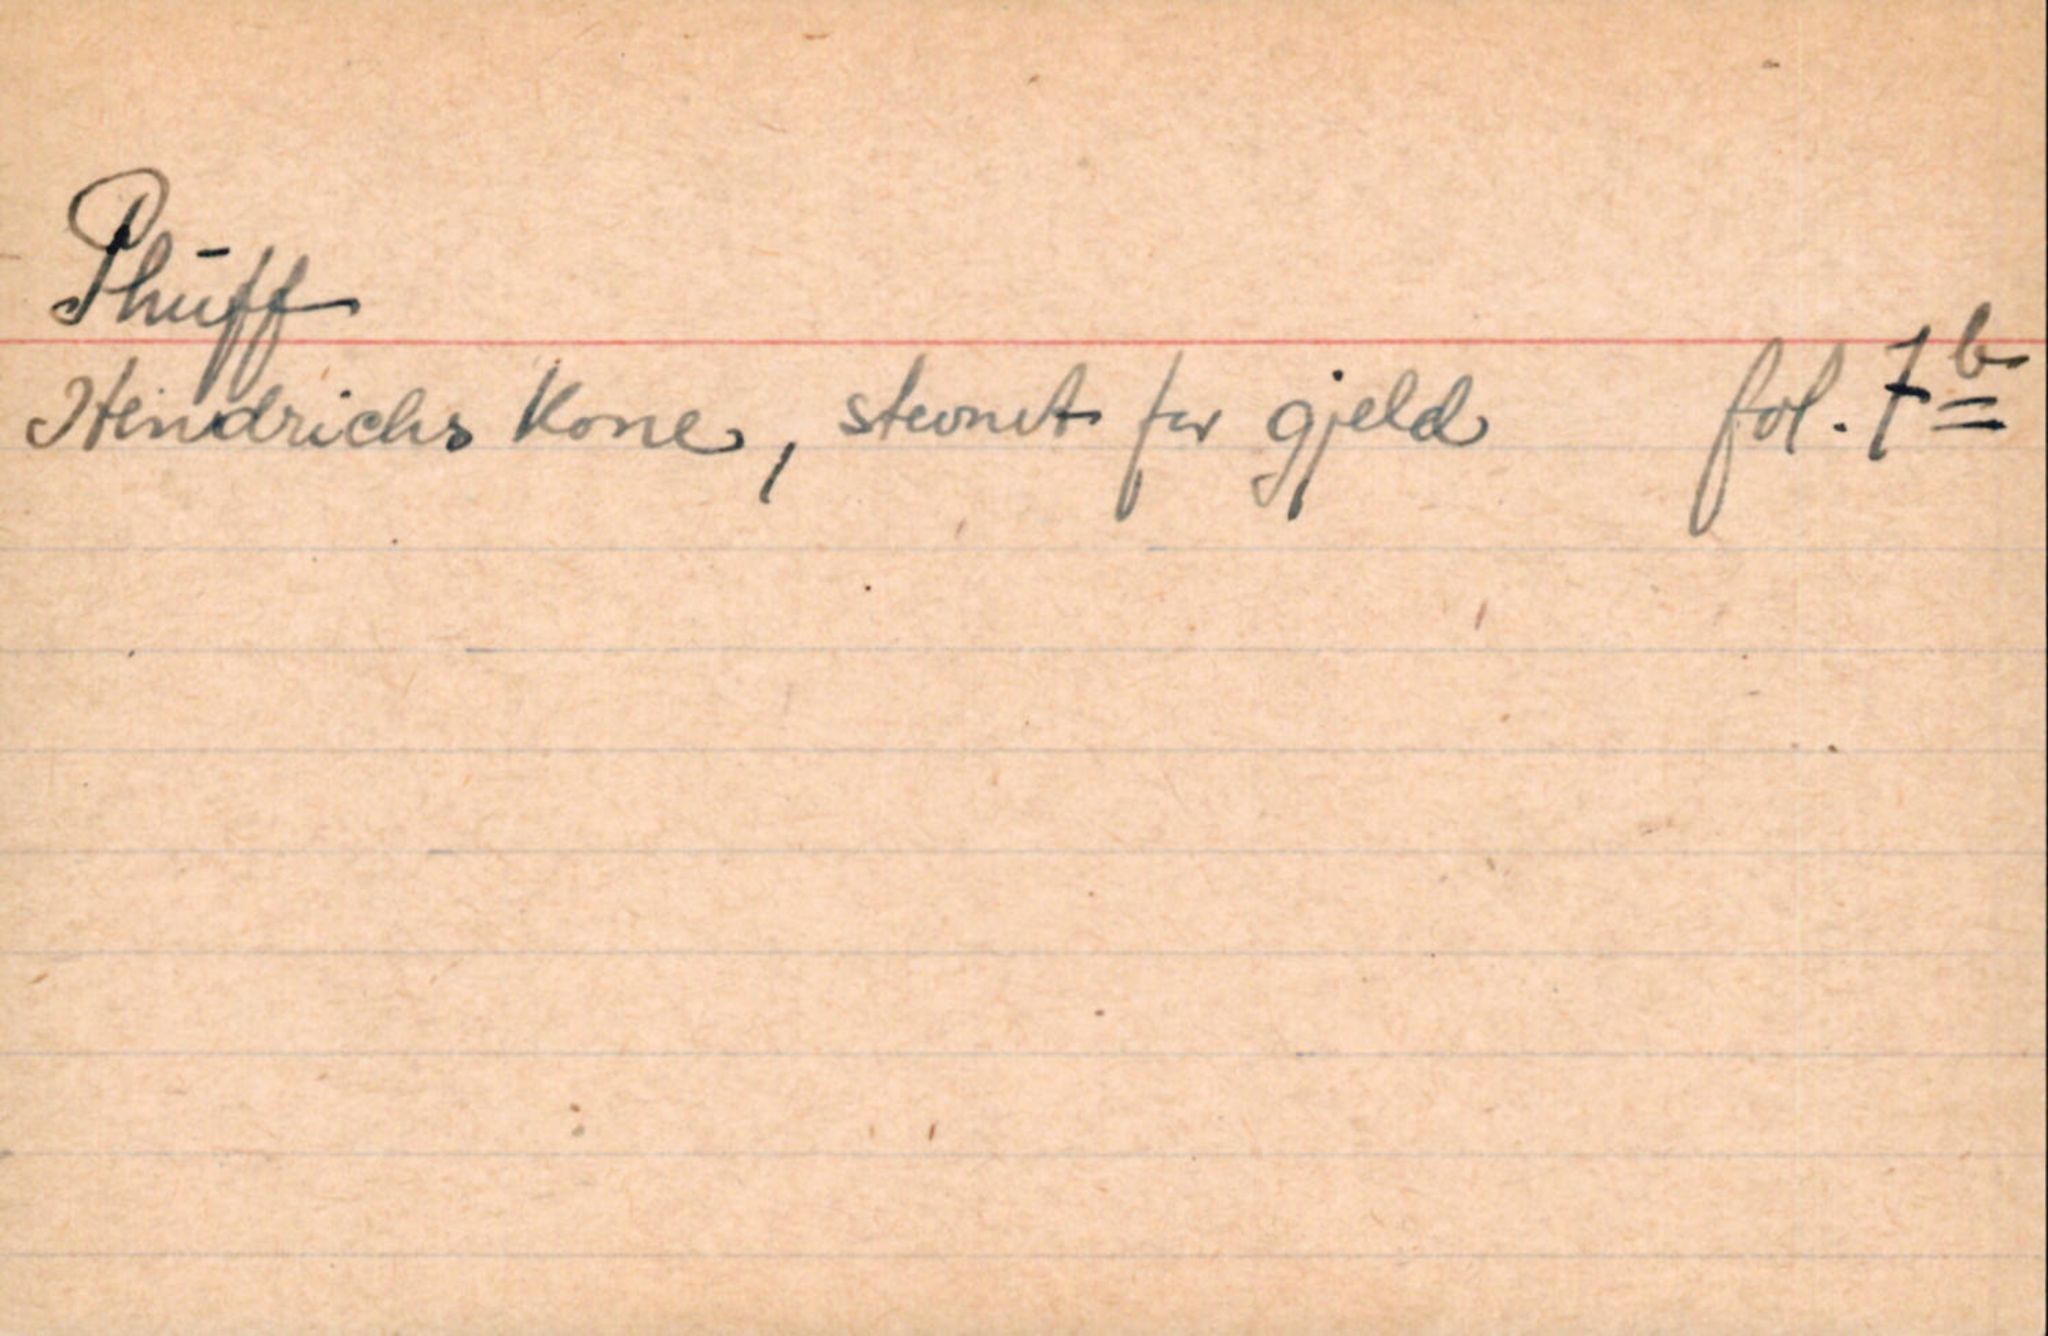 Phuff
Hendrichs Kone, stevnet for gjeld fol. 7b